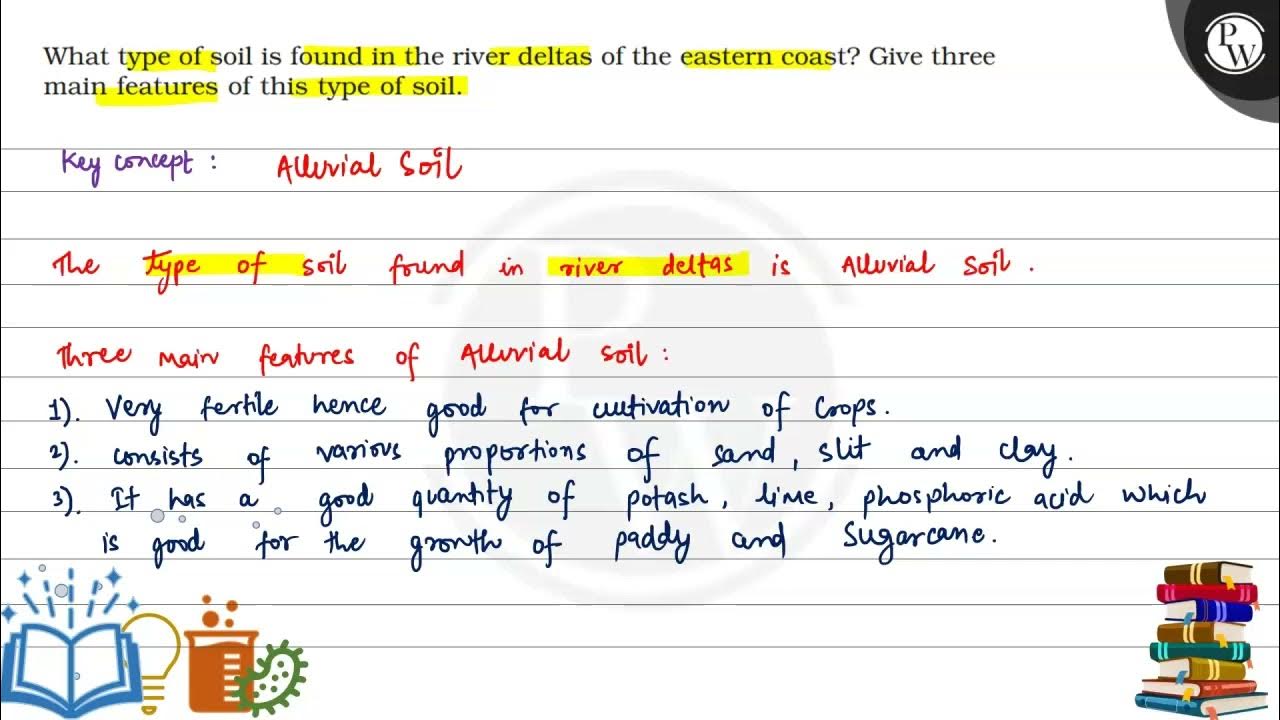 What type of soil is found in the river deltas of the eastern coast? Give three
main features of this type of soil.
PW
Key concept : Alluvial Soil
The type of soil found in river deltas is Alluvial Soil .
Three main features of Alluvial soil :
1). Very fertile hence good for cultivation of Crops.
2). consists of various proportions of sand, slit and clay.
3). It has a good quantity of potash, lime, phosphoric acid which
is good for the growth of paddy and Sugarcane.